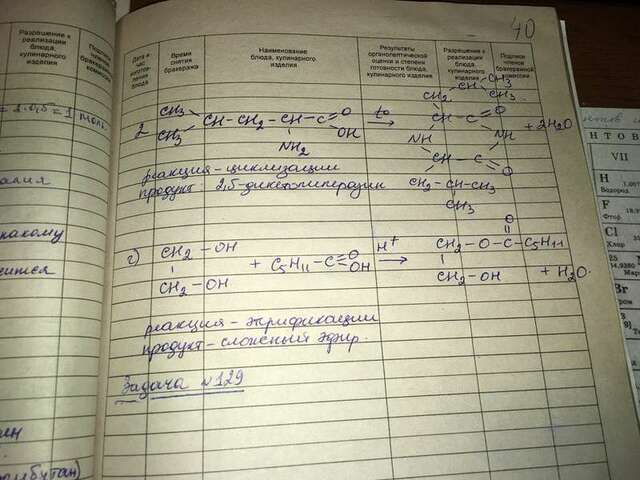 40
Разрешение к реализации блюда, кулинарного изделия
Подписи членов бракеражной комиссии
Дата и час изготовления блюда
Время снятия бракеража
Наименование блюда, кулинарного изделия
Результаты органолептической оценки и степени готовности блюда, кулинарного изделия
Разрешение к реализации блюда, кулинарного изделия
Подписи членов бракеражной комиссии
= 2·0,5 = 1 моль
CH2 – CH – CH3
CH3
2 CH3 CH – CH2 – CH – C O
CH3 NH2 OH
t° →
CH – C = O
NH NH + 2H2O
CH – C = O
CH2 – CH – CH3
CH3
реакция – циклизации
продукт: 2,5-дикетопиперазин
г) CH2 – OH
CH2 – OH
+ C5H11 – C O OH
H+ →
O
CH2 – O – C – C5H11
CH2 – OH + H2O.
реакция – этерификации
продукт – сложный эфир.
Задача №129
VII
H
Водород
F
Фтор
Cl
Хлор
Br